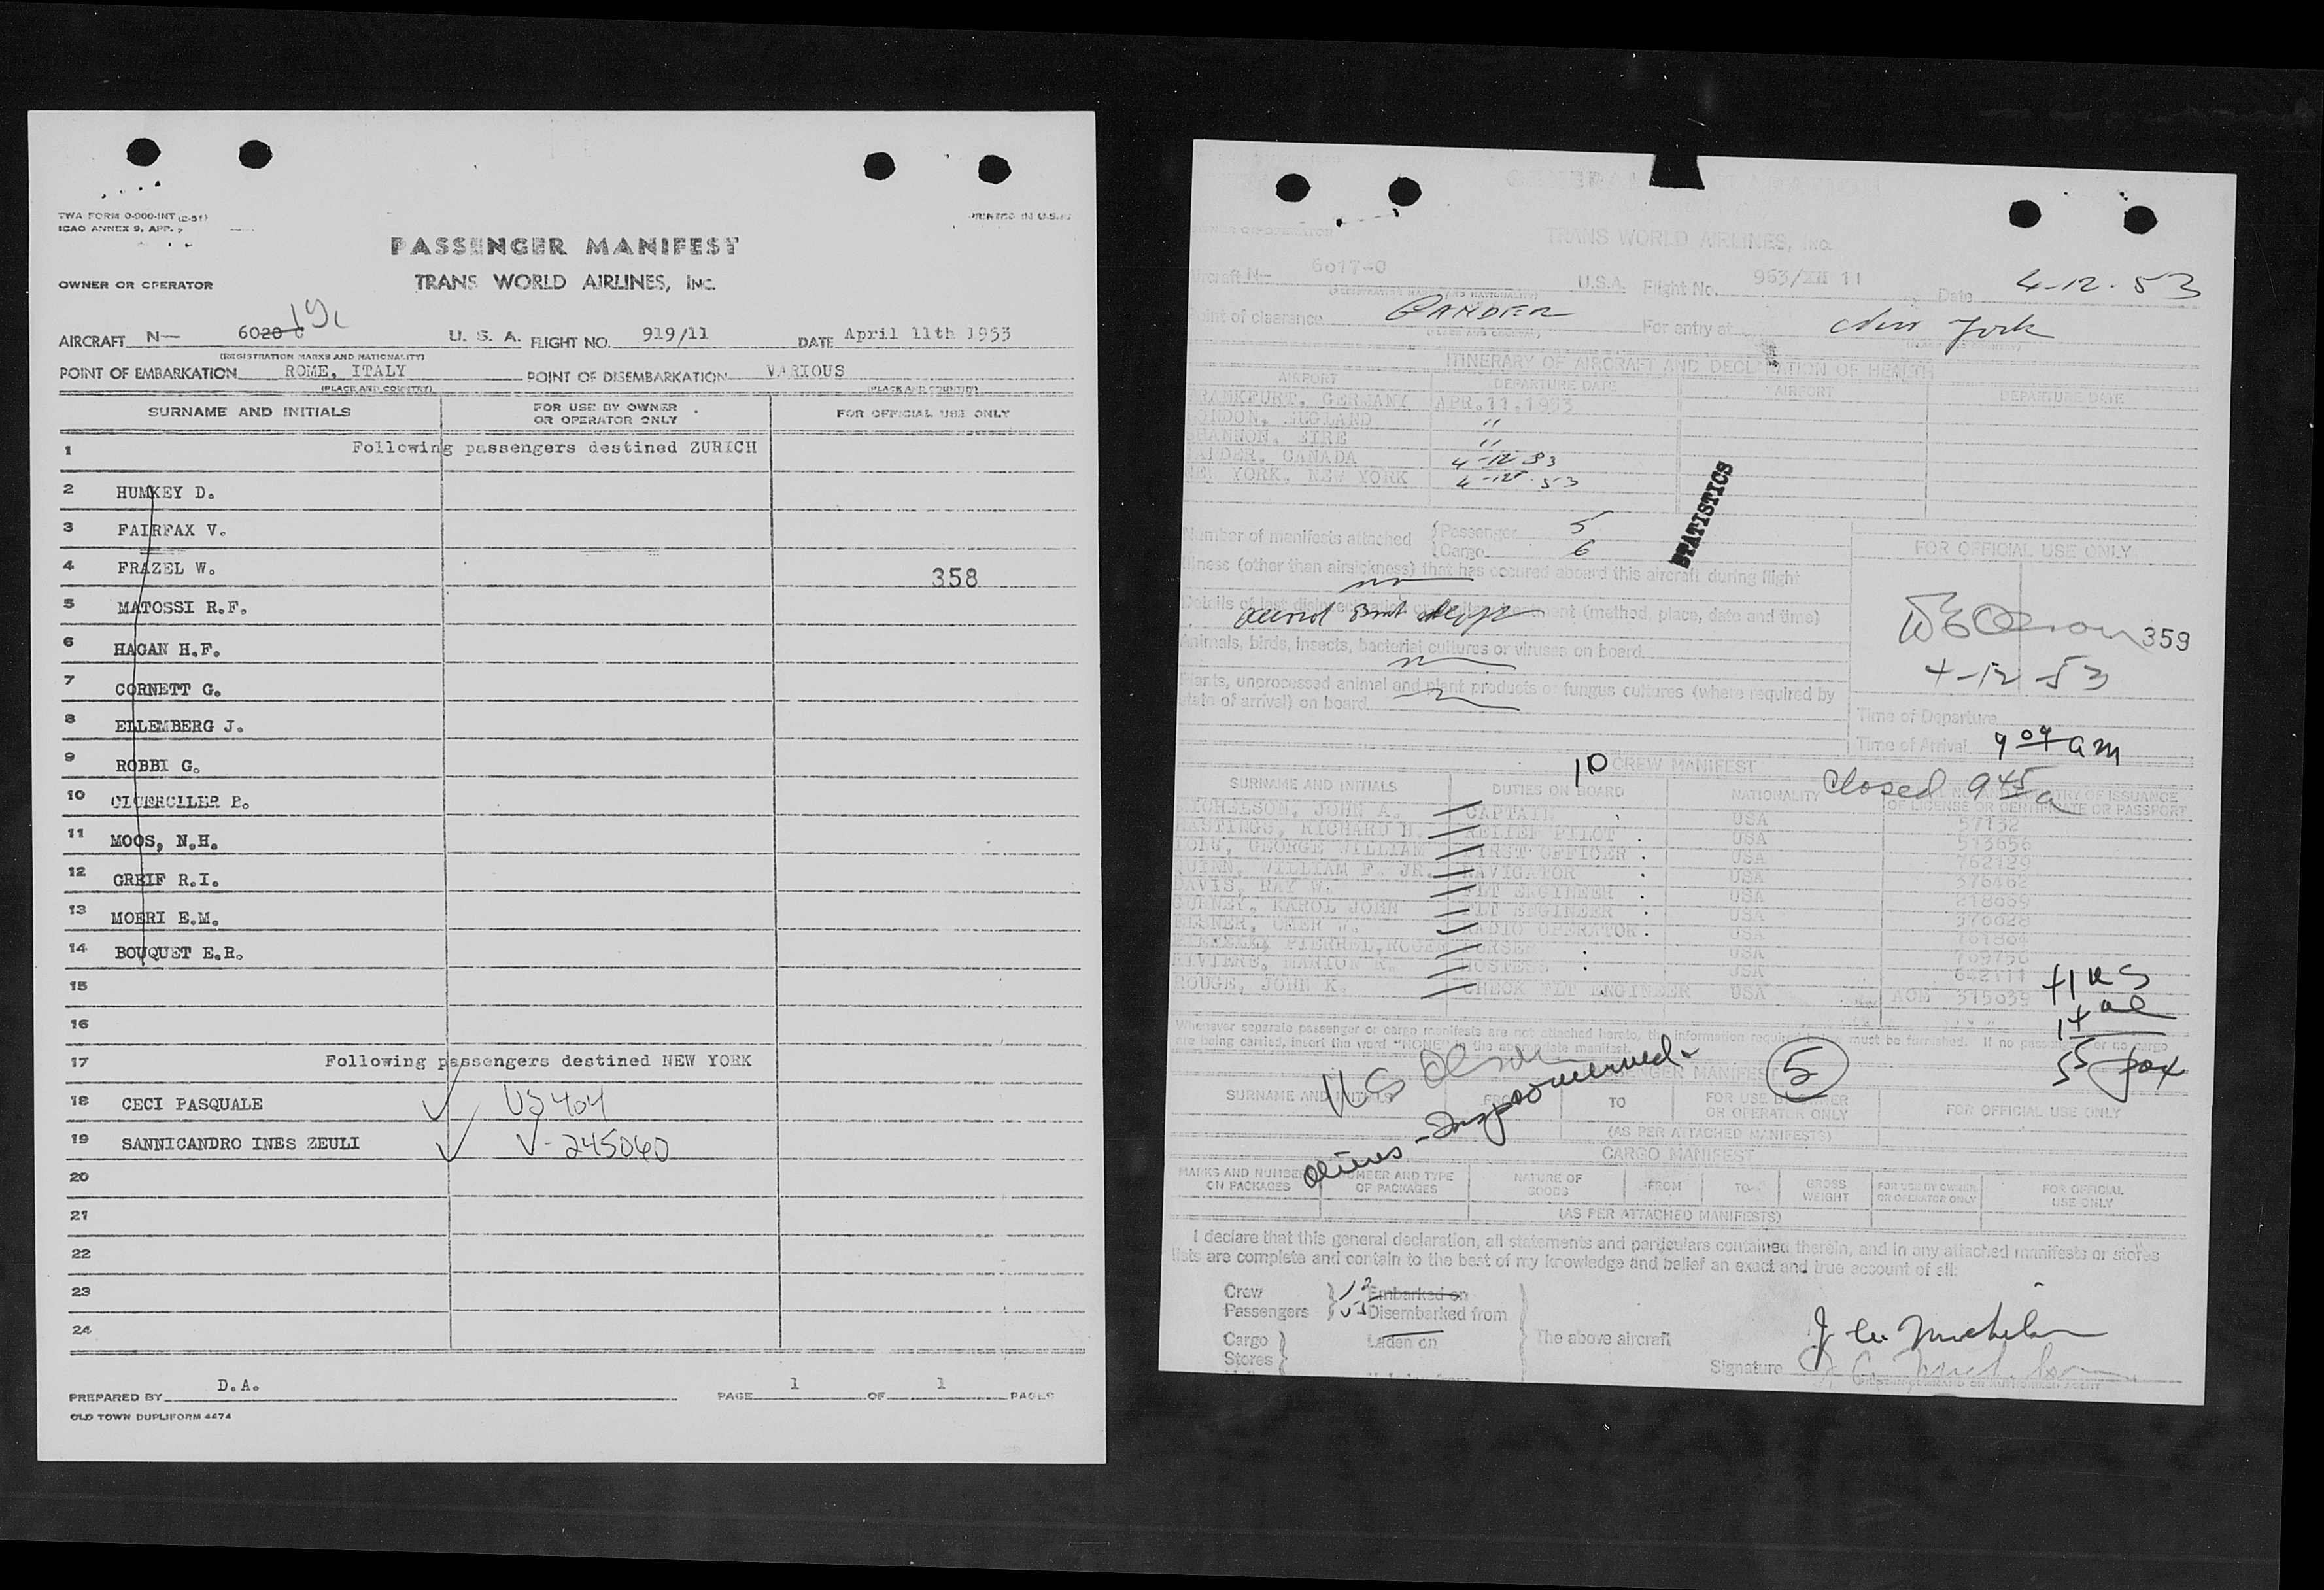 TWA FORM 0-900-INT (2-51)
ICAO ANNEX 9, APP.
PRINTED IN U.S.A.
PASSENGER MANIFEST
OWNER OR OPERATOR
TRANS WORLD AIRLINES, INC.
AIRCRAFT N— 6020 C 19c U. S. A. FLIGHT NO. 919/11 DATE April 11th 1953
(REGISTRATION MARKS AND NATIONALITY)
POINT OF EMBARKATION ROME, ITALY POINT OF DISEMBARKATION VARIOUS
(PLACE AND COUNTRY) (PLACE AND COUNTRY)
SURNAME AND INITIALS FOR USE BY OWNER OR OPERATOR ONLY FOR OFFICIAL USE ONLY
1 Following passengers destined ZURICH
2 HUMKEY D.
3 FAIRFAX V.
4 FRAZEL W. 358
5 MATOSSI R.F.
6 HAGAN H.F.
7 CORNETT G.
8 ELLEMBERG J.
9 ROBBI G.
10 P.
11 MOOS, N.H.
12 GREIF R.I.
13 MOERI E.M.
14 BOUQUET E.R.
15
16
17 Following passengers destined NEW YORK
18 CECI PASQUALE
19 SANNICANDRO INES ZEULI V-245060
20
21
22
23
24
PREPARED BY D.A. PAGE 1 OF 1 PAGES
OLD TOWN DUPLIFORM 4474
TRANS WORLD AIRLINES, Inc.
Aircraft N— 6017-C U.S.A. Flight No. 963/ 11 Date 4-12-53
(REGISTRATION MARKS AND NATIONALITY)
Point of clearance GANDER For entry at New York
(PLACE AND COUNTRY)
ITINERARY OF AIRCRAFT AND DECLARATION OF HEALTH
AIRPORT DEPARTURE DATE AIRPORT DEPARTURE DATE
FRANKFURT, GERMANY APR. 11, 1953
LONDON, ENGLAND "
SHANNON, EIRE "
GANDER, CANADA 4-12-53
NEW YORK, NEW YORK 4-12-53
STATISTICS
Number of manifests attached Passenger 5
Cargo 6
FOR OFFICIAL USE ONLY
Illness (other than airsickness) that has occured aboard this aircraft during flight
Details of last treatment (method, place, date and time)
359
Animals, birds, insects, bacterial cultures or viruses on board
4-12-53
Plants, unprocessed animal and plant products or fungus cultures (where required by
state of arrival) on board
Time of Departure
Time of Arrival 9 09 am
10 CREW MANIFEST
Closed 9 45 a
SURNAME AND INITIALS DUTIES ON BOARD NATIONALITY OF LICENSE OR CERTIFICATE OR PASSPORT
MICHELSON, JOHN A. CAPTAIN USA 57132
HASTINGS, RICHARD H. RELIEF PILOT USA 513656
LONG, GEORGE WILLIAM FIRST OFFICER USA 762129
QUINN, WILLIAM F. JR. NAVIGATOR USA 376462
DAVIS, RAY W. FLT ENGINEER USA 218069
KAROL JOHN FLT ENGINEER USA
OMER W. RADIO OPERATOR USA
PURSER USA
HOSTESS USA
ROUGE, JOHN K. CHECK FLT ENGINEER USA 315039
Whenever separate passenger or cargo manifests are not attached hereto, the information required below must be furnished. If no passengers or no cargo
are being carried, insert the word "NONE" in the appropriate manifest.
5
PASSENGER MANIFEST
SURNAME AND INITIALS FROM TO FOR USE BY OWNER OR OPERATOR ONLY FOR OFFICIAL USE ONLY
(AS PER ATTACHED MANIFESTS)
CARGO MANIFEST
MARKS AND NUMBER ON PACKAGES NUMBER AND TYPE OF PACKAGES NATURE OF GOODS FROM TO GROSS WEIGHT FOR USE BY OWNER OR OPERATOR ONLY FOR OFFICIAL USE ONLY
(AS PER ATTACHED MANIFESTS)
I declare that this general declaration, all statements and particulars contained therein, and in any attached manifests or stores
lists are complete and contain to the best of my knowledge and belief an exact and true account of all:
Crew Embarked on
Passengers Disembarked from
Cargo Laden on The above aircraft
Stores
Signature